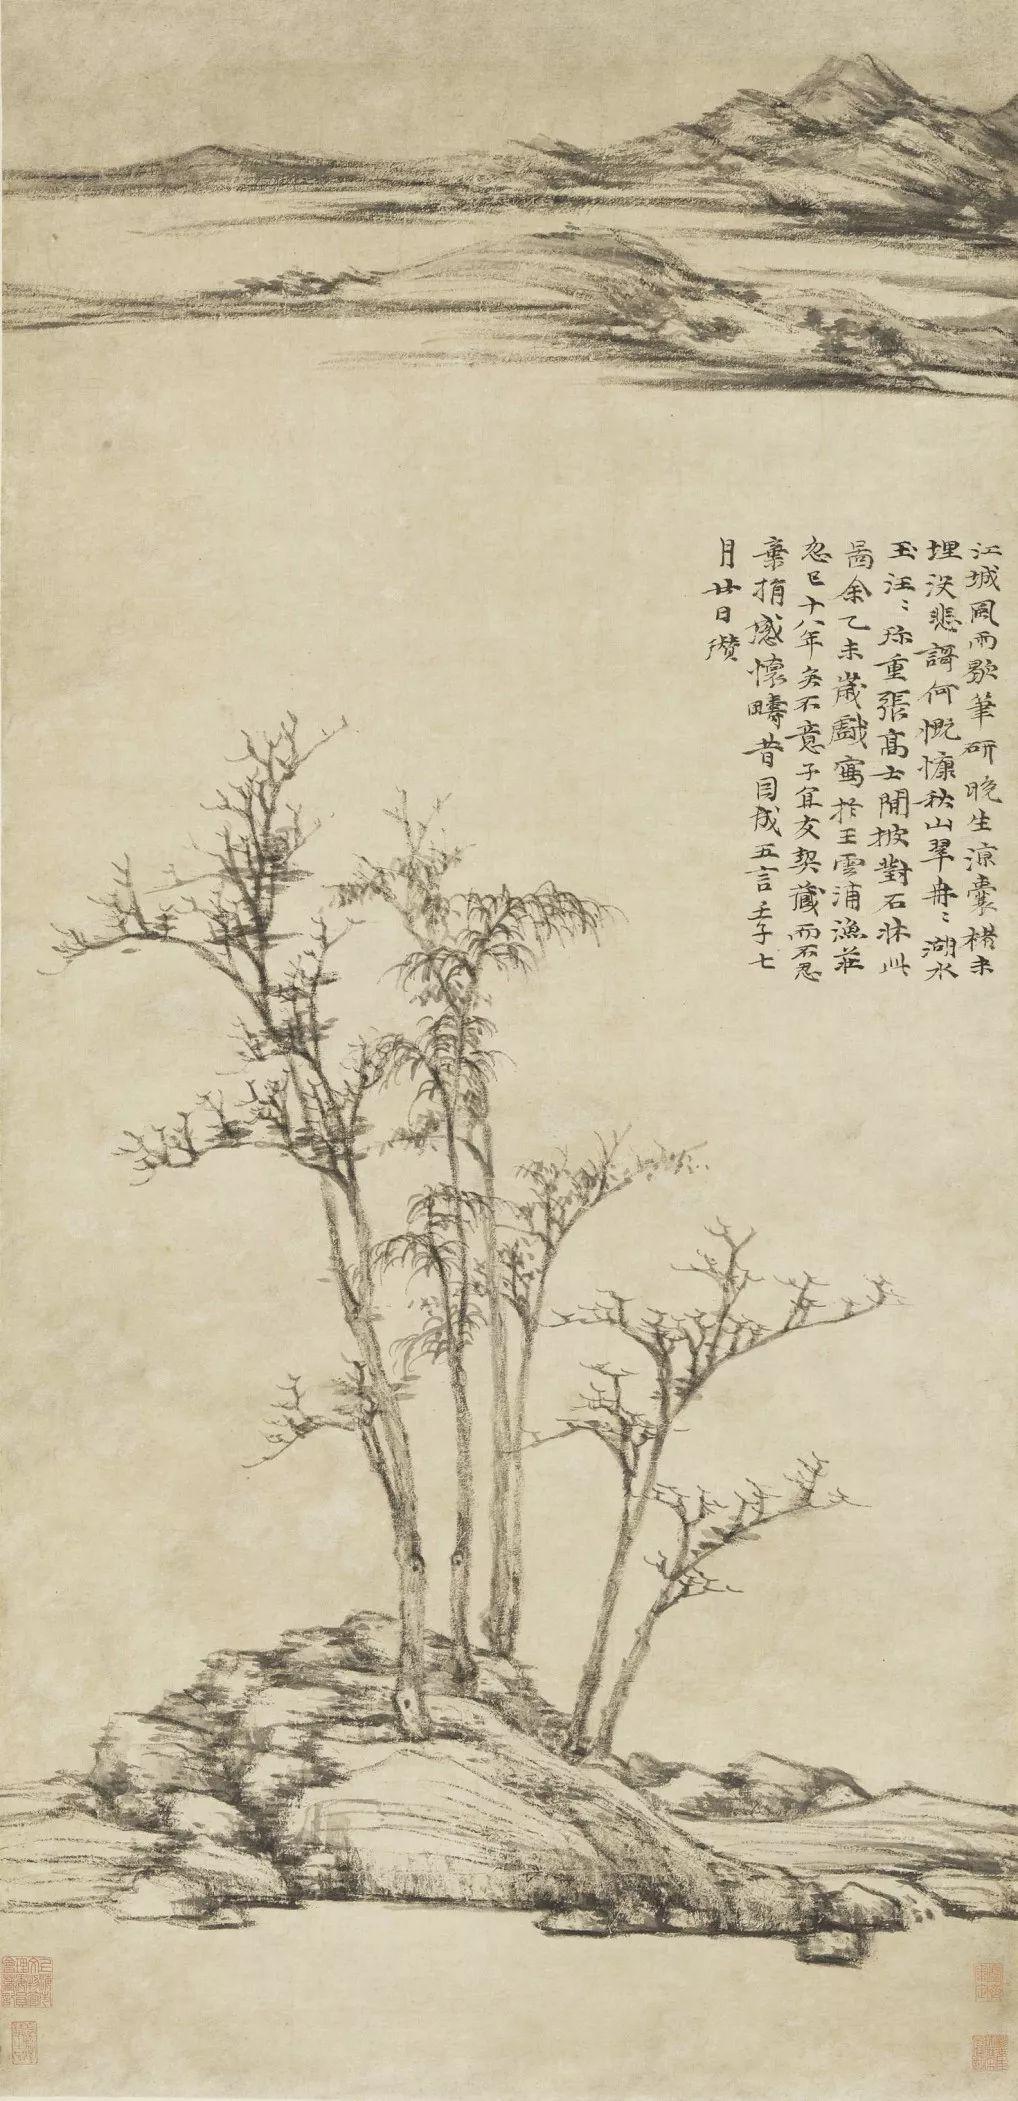 江城風雨歇筆研晚生涼囊楮未
埋沒悲謌何慨慷秋山翠冉〻湖水
玉汪〻珎重張高士閒披對石牀此
啚余乙未歲戲寫於王雲浦漁莊
忽已十八年矣不意子宜友契藏而不忍
棄捐感懷疇昔因成五言壬子七
月廿日瓚